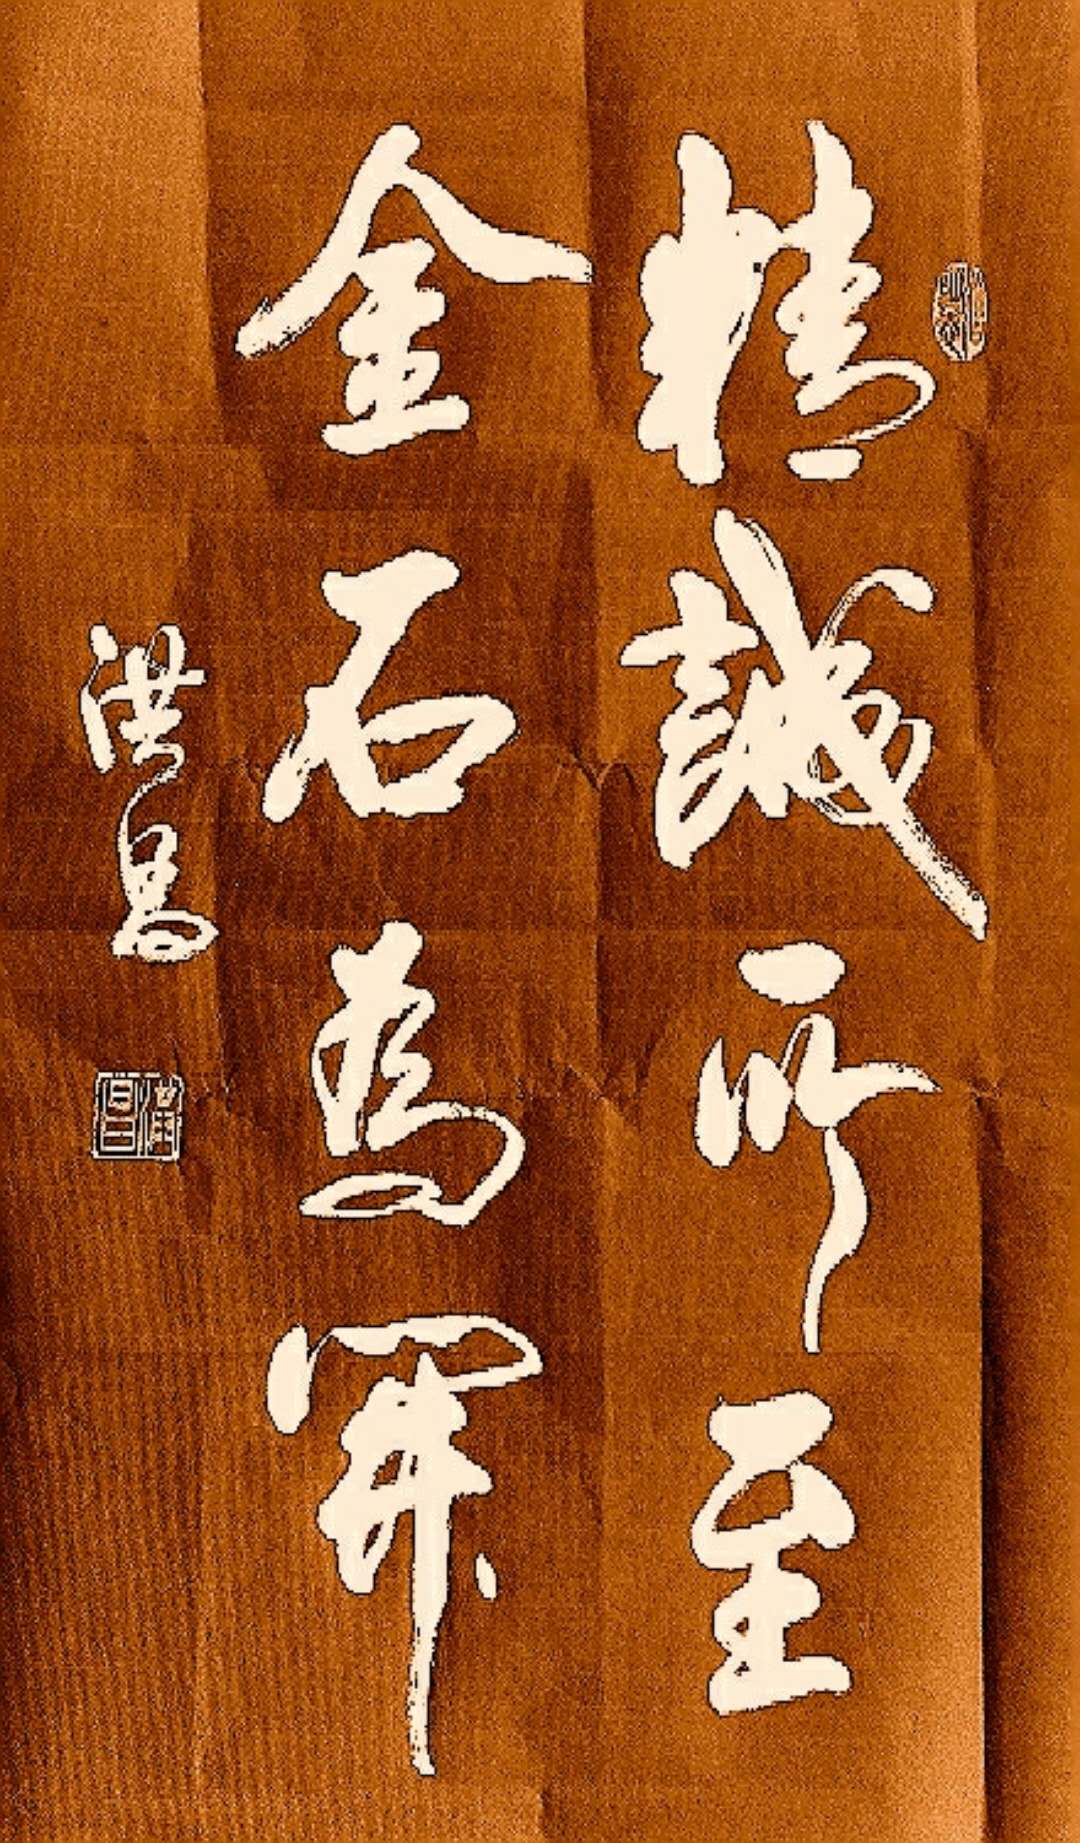 精誠所至
金石為開
洪昌